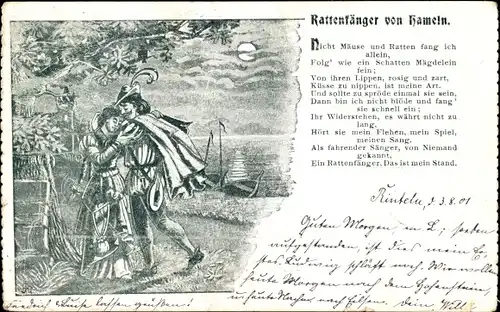 Rattenfänger von Hameln.
Nicht Mäuse und Ratten fang ich
allein,
Folg' wie ein Schatten Mägdelein
fein;
Von ihren Lippen, rosig und zart,
Küsse zu nippen, ist meine Art.
Und sollte zu spröde einmal sie sein,
Dann bin ich nicht blöde und fang'
sie schnell ein;
Ihr Widerstehen, es währt nicht zu
lang,
Hört sie mein Flehen, mein Spiel,
meinen Sang.
Als fahrender Sänger, von Niemand
gekannt,
Ein Rattenfänger, Das ist mein Stand.
Rinteln, d. 3.8.01
Guten Morgen, m. L; soeben
aufgestanden, ist dies mein
Ludwig schläft noch. Wir wollen
heute Morgen nach dem Hohenstein,
u. heute Nachm. nach Eilsen. Dein Willi
Friedrich Luise lassen grüßen!